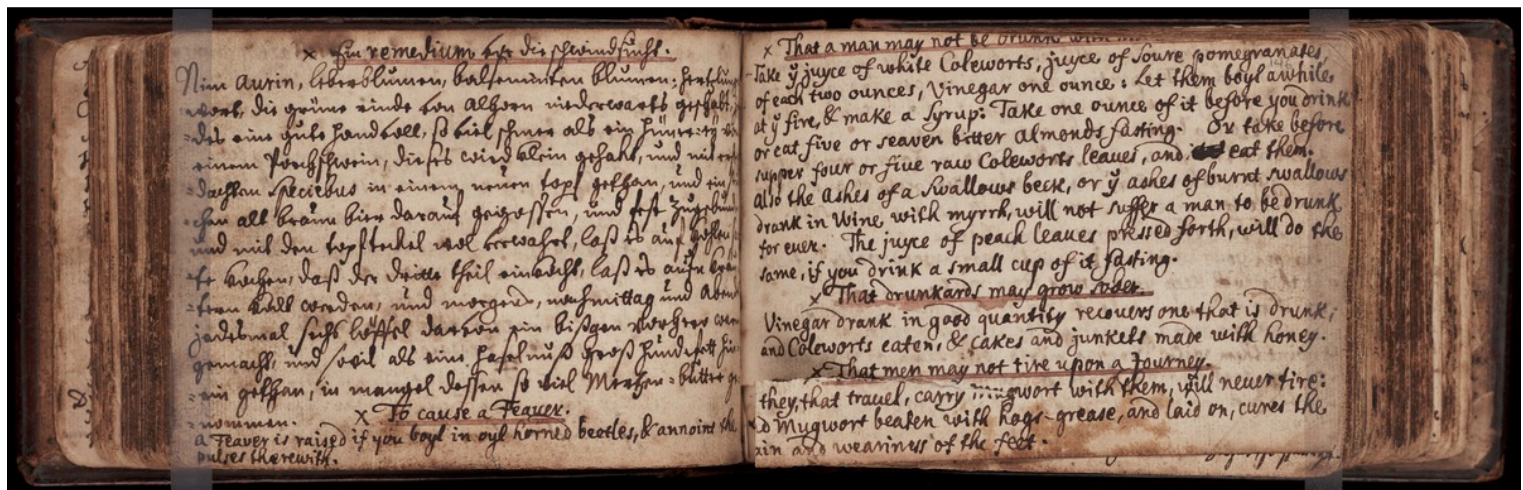 × Ein remedium vor die schwindsucht.
Nim Aurin, leberblumen, balseminten blumen, hertzlung
-wort, die grüne rinde von Alhorn niederwarts geschabt,
-des eine gute handvoll, so viel schmer als ein hünerey
einem Porchschwein, dieses wird klein gehakt, und mit
-dachten Speciebus in einem neuen topf gethan, und ein
-chen alt braun bier darauf gegossen, und fest zugebund
und mit den topfdeckel wol verwahrt, laß es auf kohlen
-te kochen, daß der dritte theil einkocht, laß es aufm
-tern kalt werden, und morgens, nachmittag und Abend
jedesmal sechs löffel darvon ein bißgen vorhero warm
gemacht, und soviel als eine haselnuß groß hundefett
-ein gethan, in mangel dessen so viel Mertzen-butter
-nommen.
× To cause a Feaver.
a Feaver is raised if you boyl in oyl horned beetles, & annoint the
pulses therewith.
× That a man may not be drunk with
Take ÿ juyce of white Coleworts, juyce of Soure pomegranates
of each two ounces, Vinegar one ounce: Let them boyl awhile
at ÿ fire, & make a Syrup: Take one ounce of it before you drink
or eat five or seaven bitter almonds fasting. Or take before
supper four or five raw Coleworts leaues, and eat them.
also the Ashes of a Swallows beck, or ÿ ashes of burnt swallows
drank in Wine, with myrrh, will not suffer a man to be drunk
for euer. The juyce of peach leaues pressed forth, will do the
same, if you drink a small cup of it fasting.
× That drunkards may grow sober.
Vinegar drank in good quantity recovers one that is drunk;
and Coleworts eaten, & cakes and junkets made with honey.
× That men may not tire upon a Journey.
they, that trauel, carry mugwort with them, will never tire:
Mugwort beaten with hogs-grease, and laid on, cures the
and weariness of the feet.